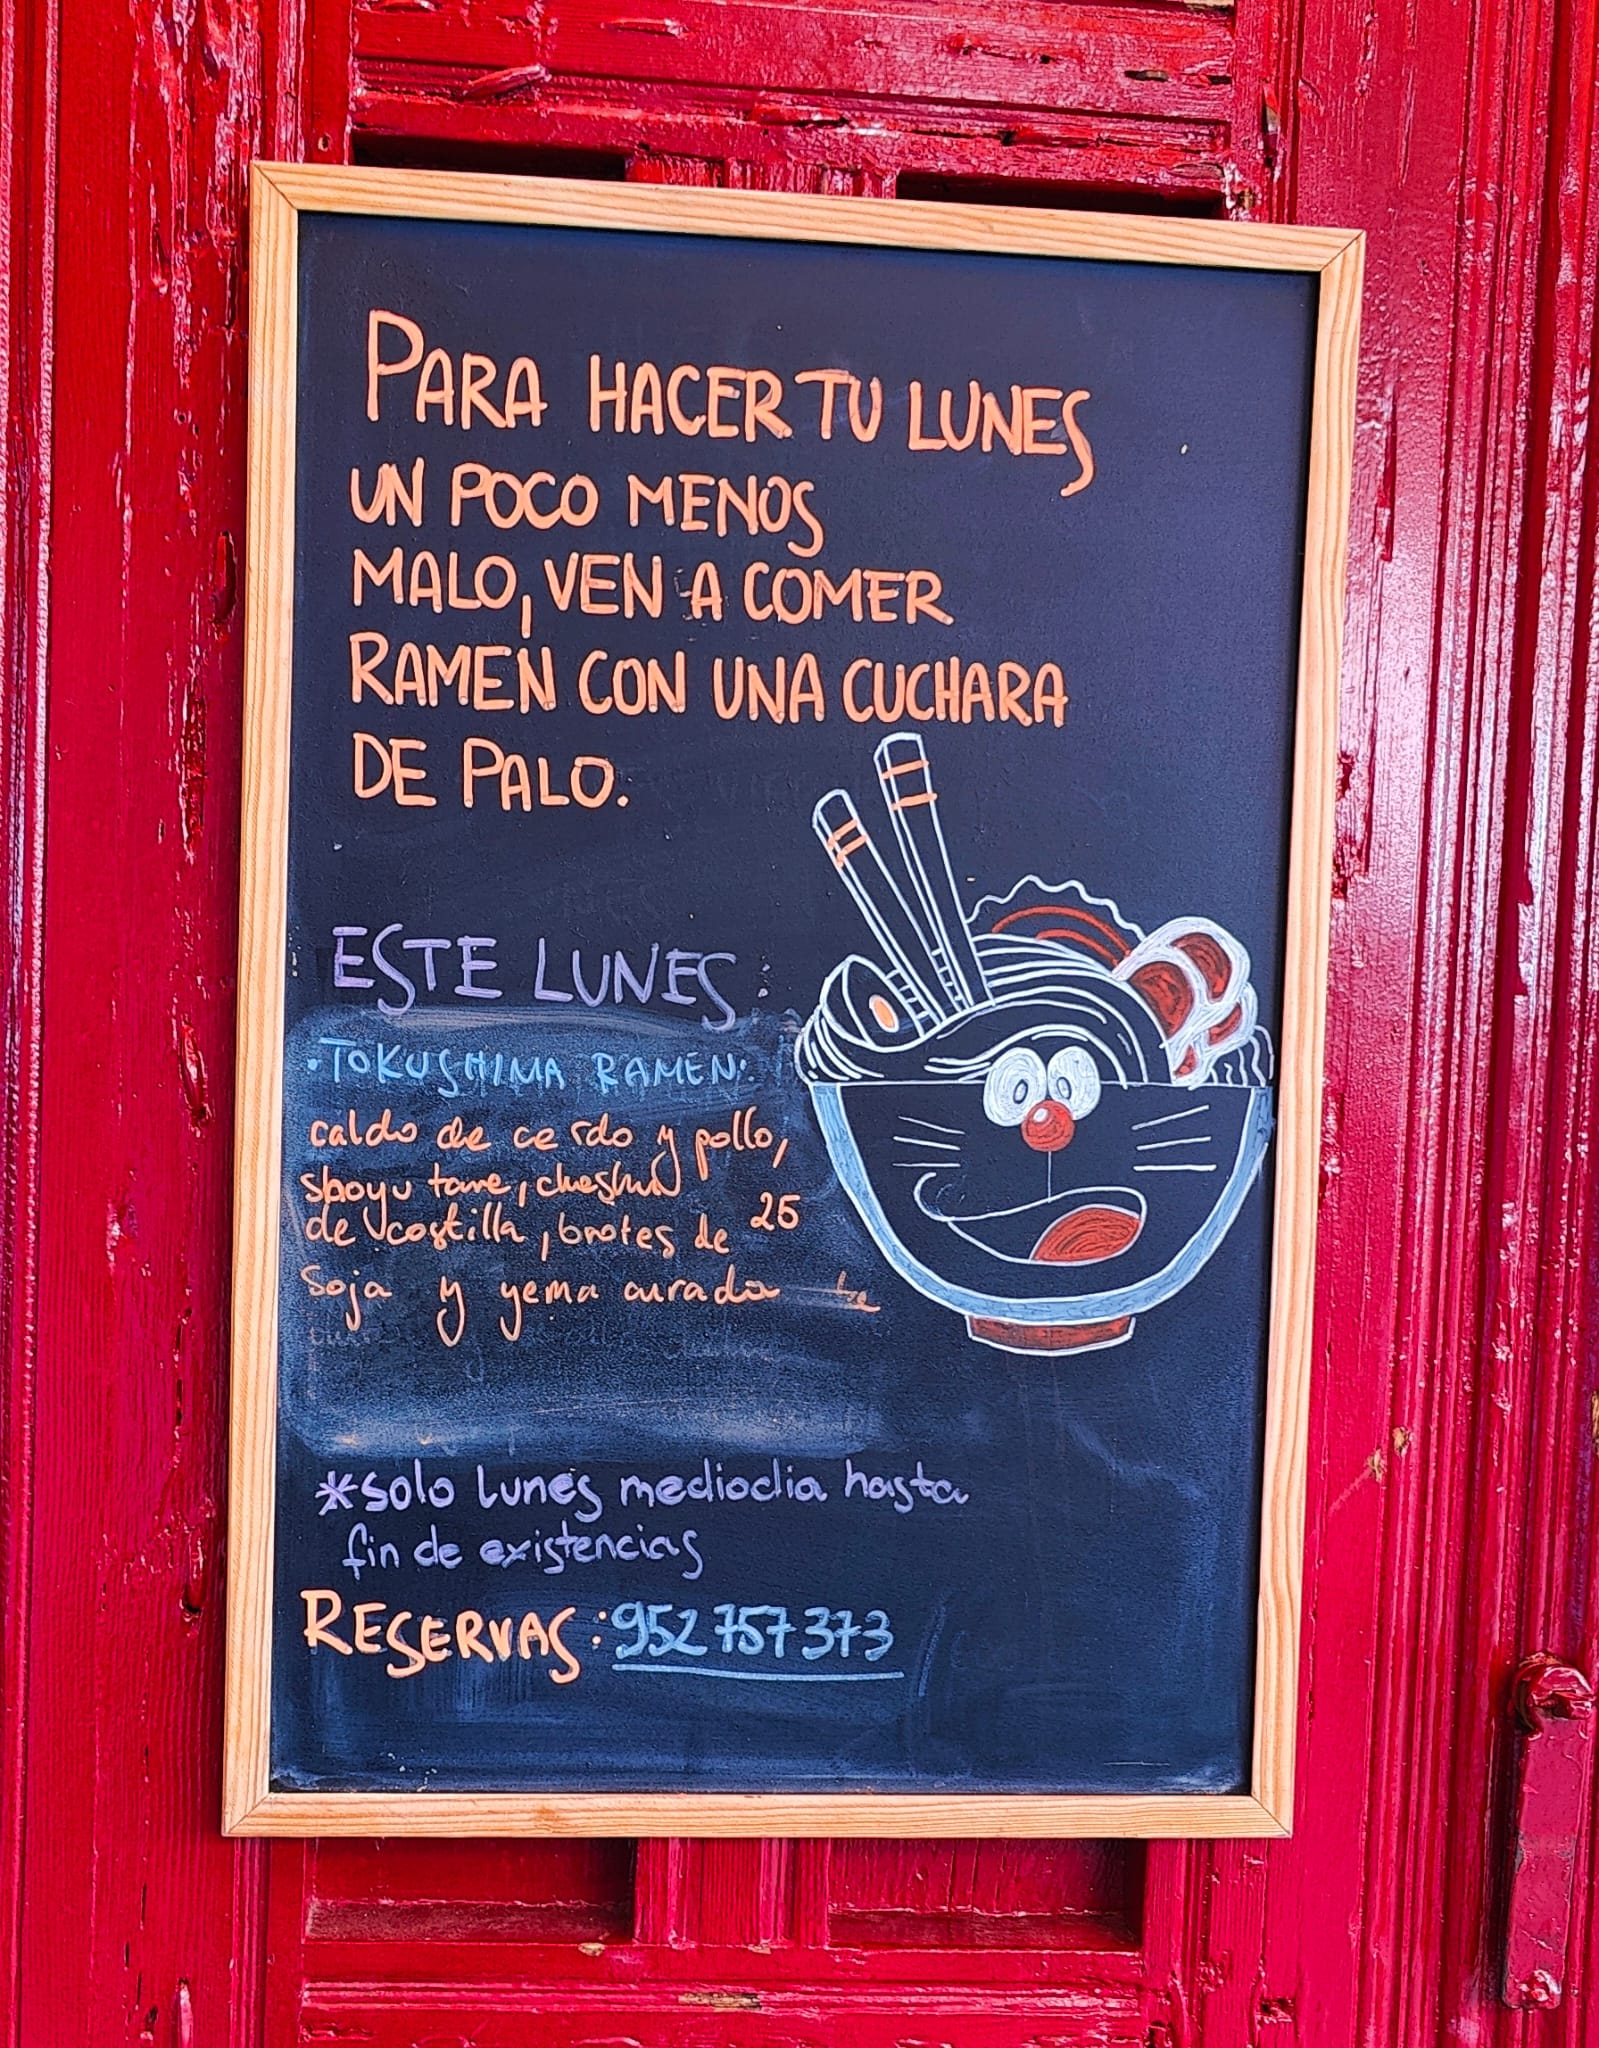 PARA HACER TU LUNES
UN POCO MENOS
MALO, VEN A COMER
RAMEN CON UNA CUCHARA
DE PALO.
ESTE LUNES:
·TOKUSHIMA RAMEN:
caldo de cerdo y pollo,
shoyu tare, chashu
de costilla, brotes de 25
soja y yema curada
*solo lunes mediodia hasta
fin de existencias
RESERVAS: 952 757 373